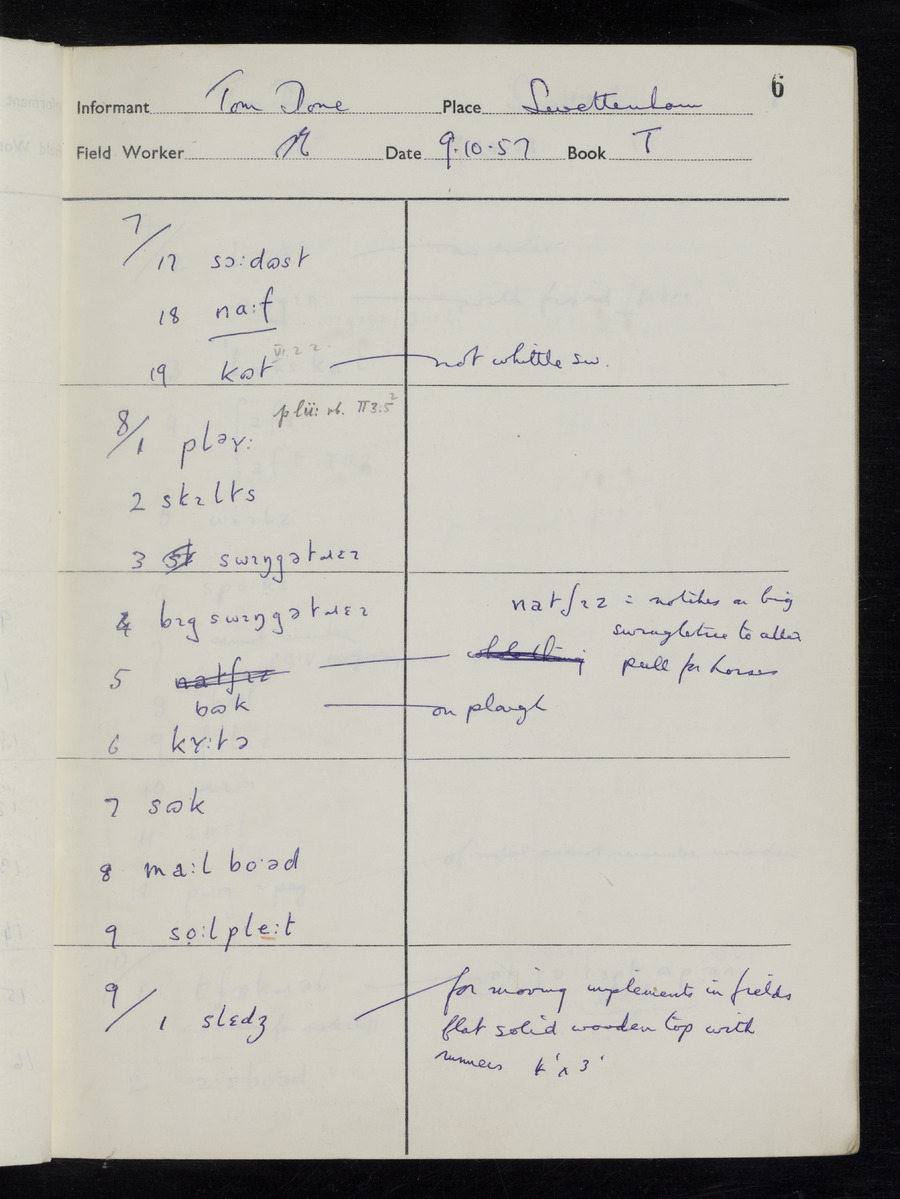 6
Informant Tom Done Place Swettenham
Field Worker Date 9.10.57 Book T
7/
17 sɔ:dɷst
18 na:f
19 kɷt VI.2 2. not whittle sw.
plü: vb. II 3.5²
8/1 pləʏ:
2 skɛlts
3 swɪŋgətɹɛɪ
4 bɪg swɪŋgətɹɛɪ natʃɪz = notches on big
swingletree to alter
5 natʃɪz pull for horses
bɷk on plough
6 kʏ:tə
7 sɷk
8 ma:l bo:əd
9 sɔ̣:l ple:t
9/1 slɛdʒ for moving implements in fields
flat solid wooden top with
runners